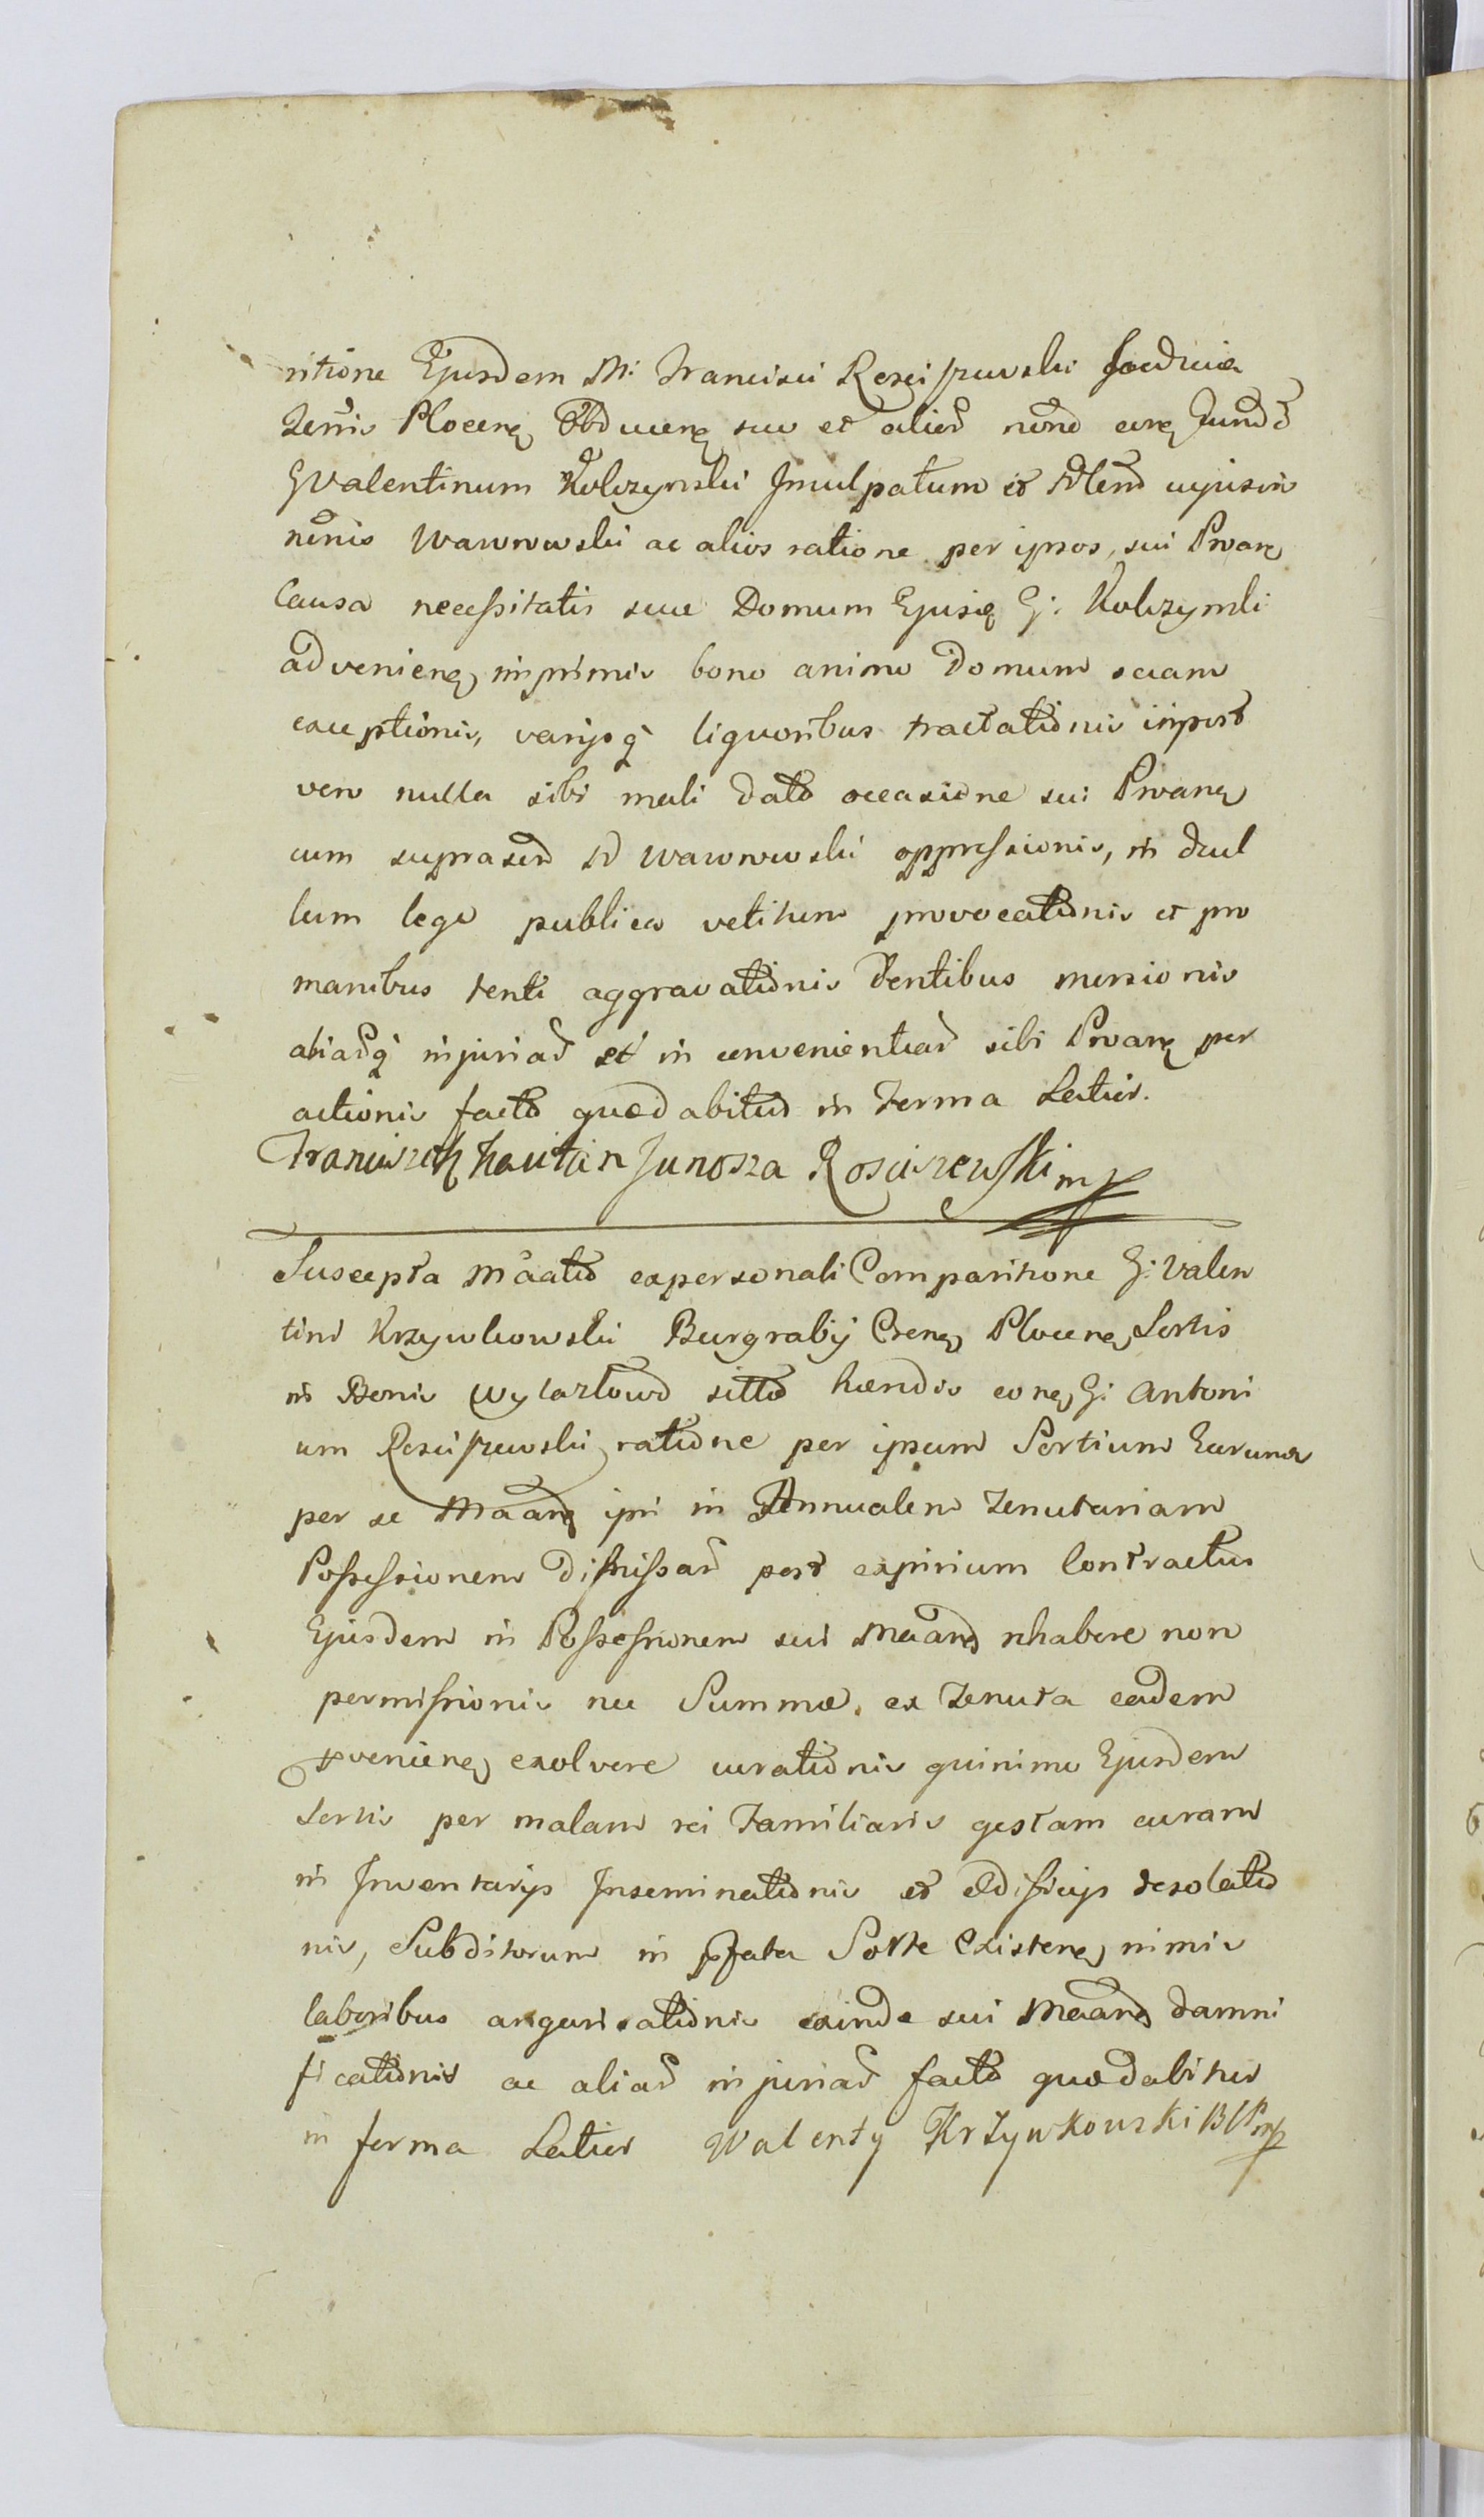 ritione Ejusdem M: Francisci Rosciszewski
Terris Plocen Obducen suo et alior none con
G Valentinum Kolczynski Inculpatum et
nonis Wawrowski ac alios ratione per ipsos, sui Pro
Causa necessitatis suae Domum Ejusq G: Kolczynski
advenien, inprimis bono animo Domum suam
exceptionis, varijsq liquoribus tractationis inpost
vero nulla sibi mali data occasione sui
cum suprascr Wawrowski oppressionis, in duel
lum lege publica vetitum provocationis et pro
manibus tenti aggravationis Dentibus morsionis
aliarq injuriar et in convenientiar sibi per
actionis facta quaedabitur in Forma Latior.
Franciszek Kaietan Junosza Rosciszewski mp
Suscepta Maatio ex personali Comparitione G: Valen
tini Krzywkowski Burgrabij Cren, Plocen, Sortis
in Bonis Wylazłowo sitto haendis con G: Antoni
um Rosciszewski, ratione per ipsum Sortium Earum
per se Maan ipsi in Annualem Tenutariam
Possessionem Dimissar post expirium Contractus
Ejusdem in Possessionem sui Maan rehabere non
permissionis nec Summae, ex Tenuta eadem
pvenien, exolvere curationis quinimo Ejusdem
Sortis per malam rei Familiaris gestam curam
in Inventarijs Inseminationis et Ædificijs desolatio
nis, Subditorum in pfata Sorte Existen, nimis
laboribus angarisationis exinde sui Maan damni
ficationis ac aliar injuriar facta quaedabitur
in forma Latior Walenty Krzywkowski BCP mp